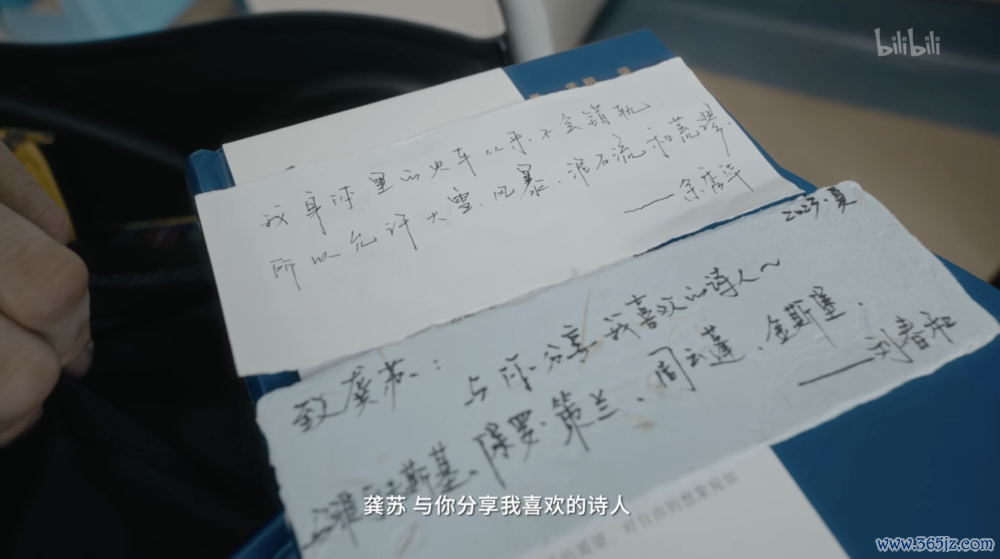 bilibili
我身体里的火车从来不会错轨
所以允许大雪、风暴、泥石流和荒谬
——余秀华
2023.夏
致龚苏：
与你分享我喜欢的诗人~
保罗·策兰、周云蓬、金斯堡.
——刘春和
龚苏 与你分享我喜欢的诗人
对自由的想象宛如
www.365jz.com